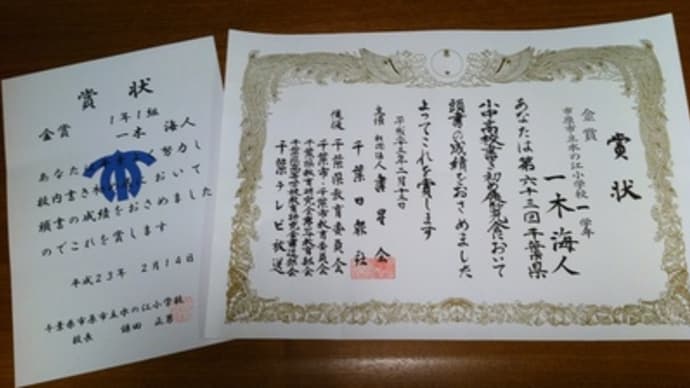 賞状
1年1組
金賞 一木 海人
あなたは
努力し
校内書き
おいて
頭書の成績をおさめました
のでこれを賞します
平成23年 2月14日
千葉県市原市立水の江小学校
校長
賞状
金賞
市原市立水の江小学校 一 学年
一木海人
あなたは第六十三回千葉県
小中高校書き初め展覧会において
頭書の成績をおさめました
よってこれを賞します
平成二十三年二月十三日
主催 社団法人 書星会
千葉日報社
後援 千葉県教育委員会
千葉市教育委員会
千葉テレビ放送